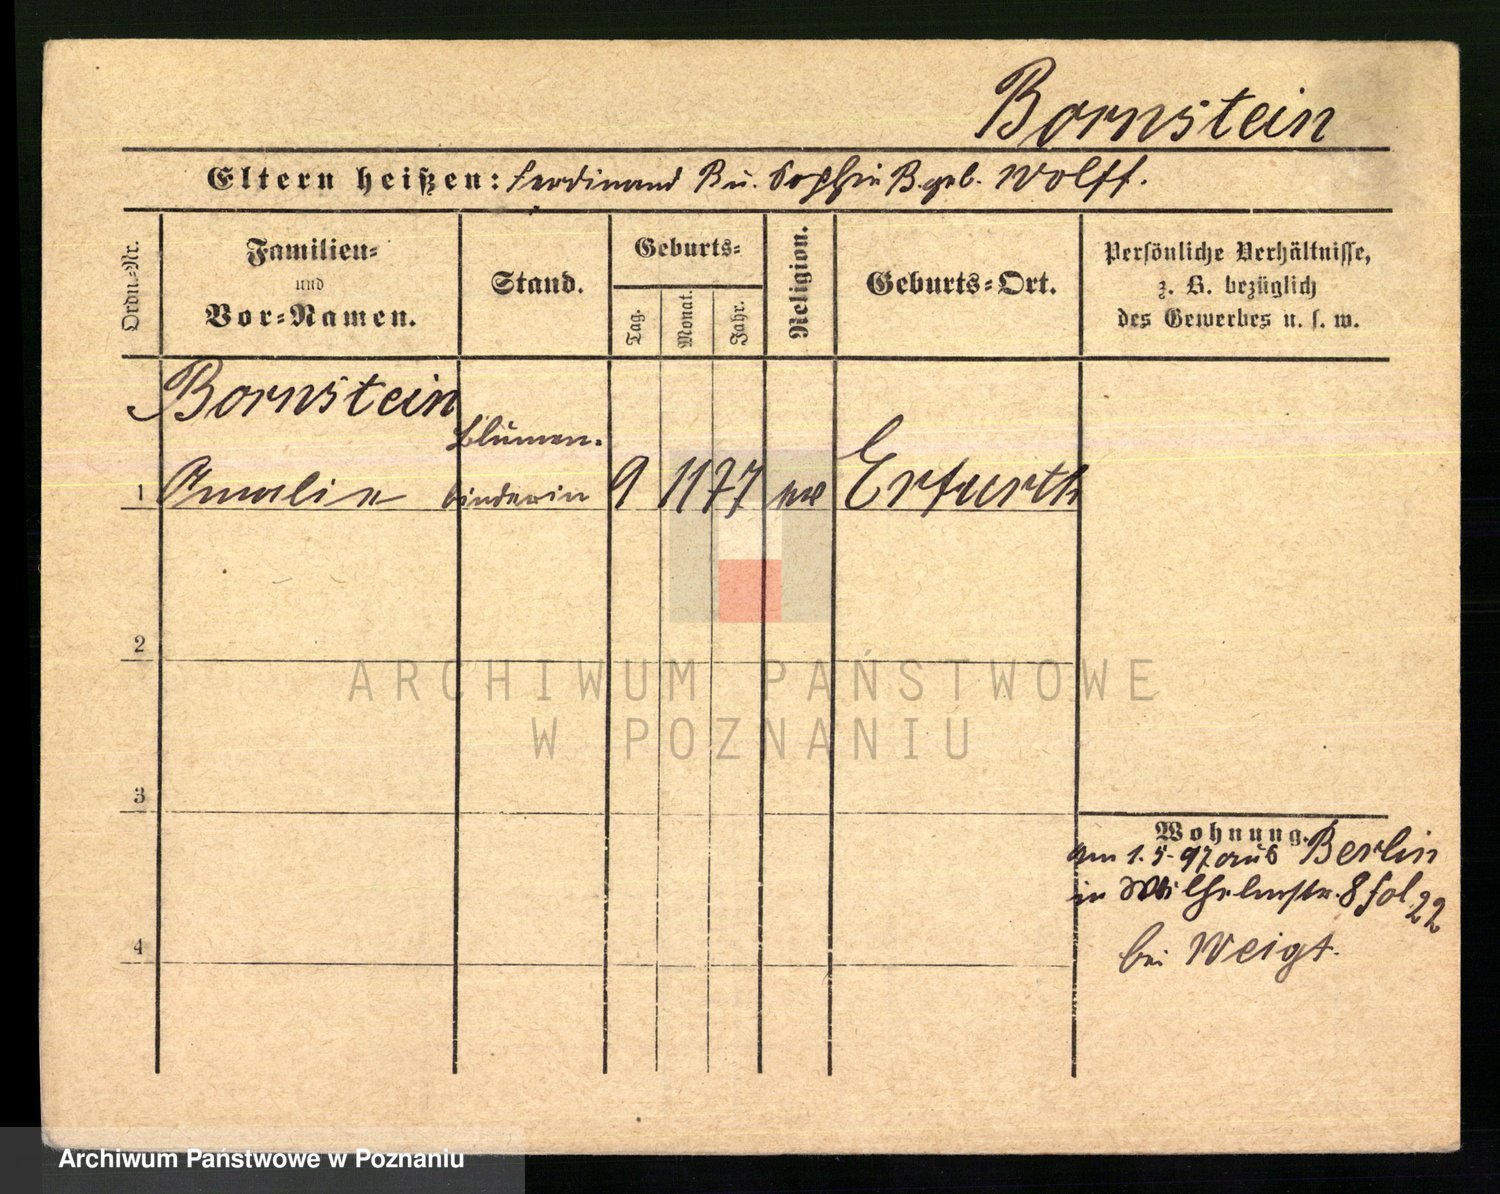 Bornstein
Eltern heißen: Ferdinand B u. Sophie B. geb. Wolff.
Ordn.-Nr.
Familien- und Vor-Namen.
Stand.
Geburts-
Tag.
Monat.
Jahr.
Religion.
Geburts-Ort.
Persönliche Verhältnisse,
z. B. bezüglich
des Gewerbes u. s. w.
Bornstein
Blumen-
1 Amalie binderin 9 11 77 Erfurth
2
ARCHIWUM PAŃSTWOWE
W POZNANIU
3
Wohnung.
am 1.5.97 aus Berlin
in Wilhelmstr. 8 fol 22
4
bei Weigt.
Archiwum Państwowe w Poznaniu